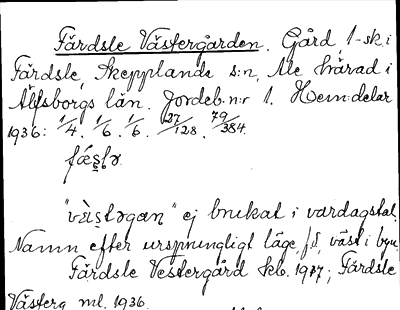 Färdsle Västergården. Gård, 1-sk. i
Färdsle, Skepplanda s:n, Ale härad i
Älfsborgs län. Jordeb:n:r 1. Hem:delar
1936: 1/4. 1/6. 1/6. 27/128. 79/384.
fæs̥lə.
"vὲstəgan" ej brukat i vardagstal.
Namn efter ursprungligt läge, f.d. väst i byn.
Färdsle Vestergård kb. 1917; Färdsle
Västerg ml. 1936.